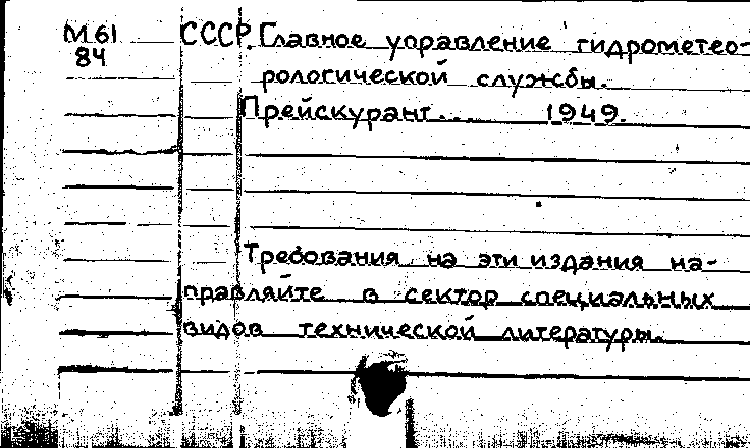 М61 СССР. Главное управление гидрометео-
84
рологической службы.
Прейскурант... 1949.
Требования на эти издания на-
правляйте в сектор специальных
видов технической литературы.